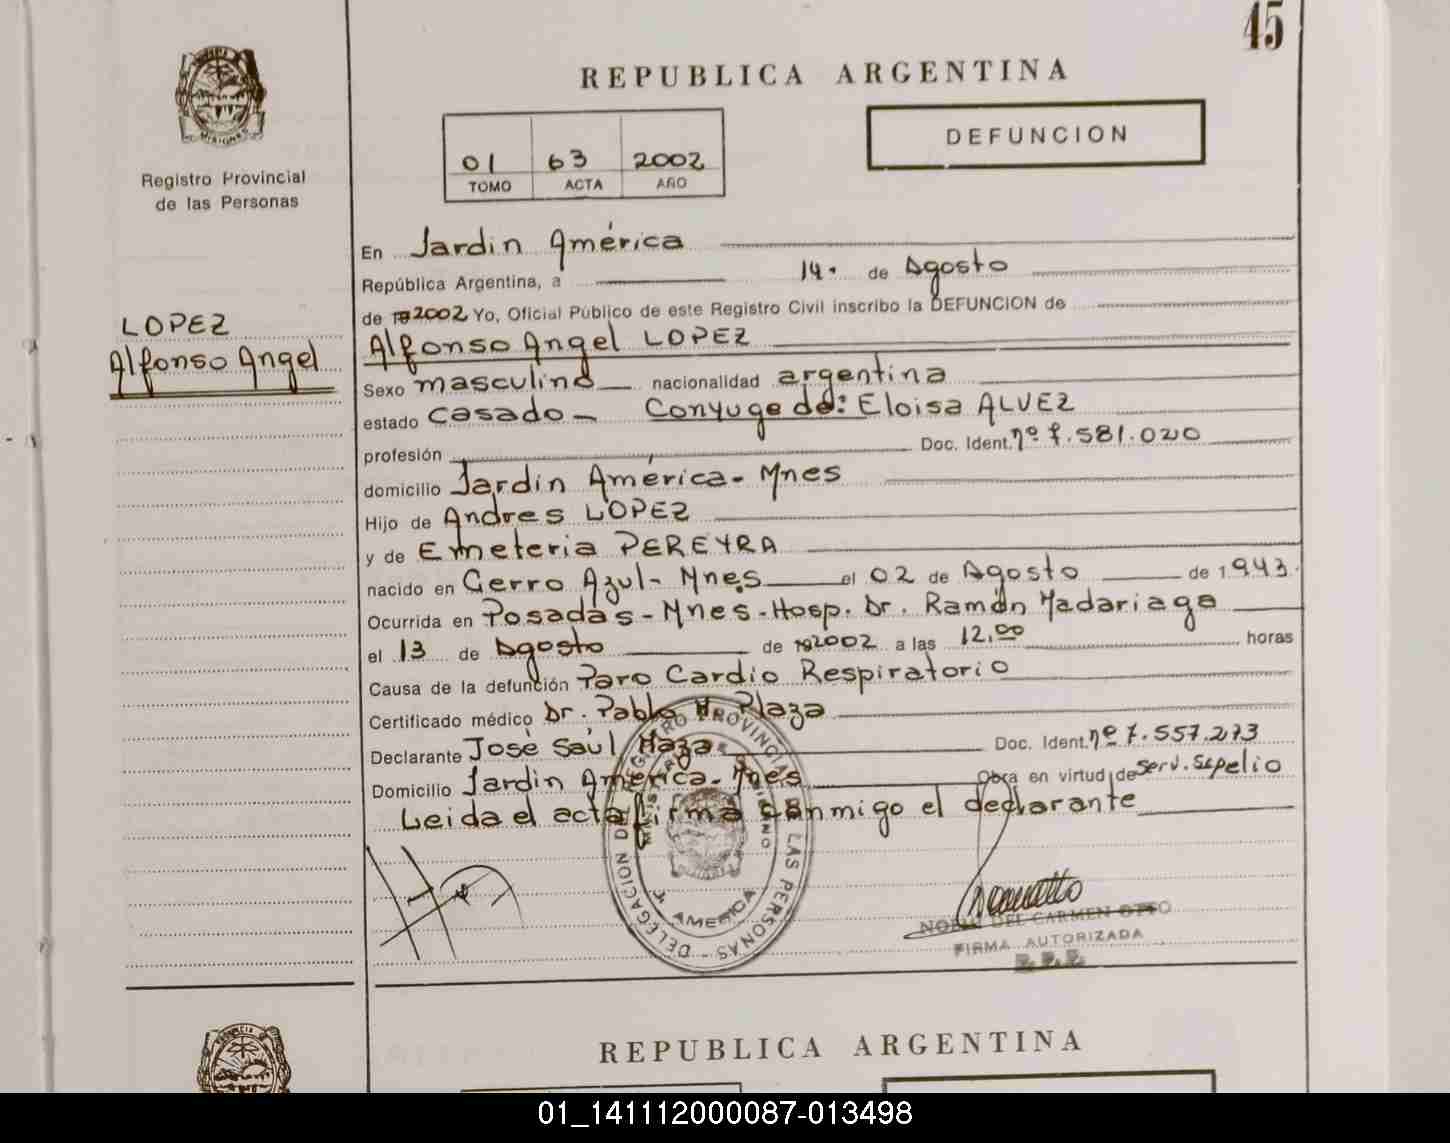 45
REPUBLICA ARGENTINA
DEFUNCION
01 63 2002
TOMO ACTA AÑO
Registro Provincial
de las Personas
LOPEZ
Alfonso Angel
En Jardin América
República Argentina, a 14. de Agosto
de 2002 Yo, Oficial Público de este Registro Civil inscribo la DEFUNCION de
Alfonso Angel LOPEZ
Sexo masculino nacionalidad argentina
estado casado - Conyuge de: Eloisa ALVEZ
profesión Doc. Ident. nº 7.581.020
domicilio Jardin América - Mnes
Hijo de Andres LOPEZ
y de Emeteria PEREYRA
nacido en Cerro Azul - Mnes el 02 de Agosto de 1943.
Ocurrida en Posadas - Mnes - Hosp. Dr. Ramón Madariaga
el 13 de Agosto de 2002 a las 12,00 horas
Causa de la defunción Paro Cardio Respiratorio
Certificado médico Dr. Pablo H. Plaza
Declarante José Saúl Maza Doc. Ident. nº 7.557.273
Domicilio Jardin América - Mnes Obra en virtud de Serv. Sepelio
Leida el acta firma conmigo el declarante
DELEGACION DEL REGISTRO PROVINCIAL DE LAS PERSONAS
J. AMERICA
DEL CARMEN
FIRMA AUTORIZADA
REPUBLICA ARGENTINA
01_141112000087-013498